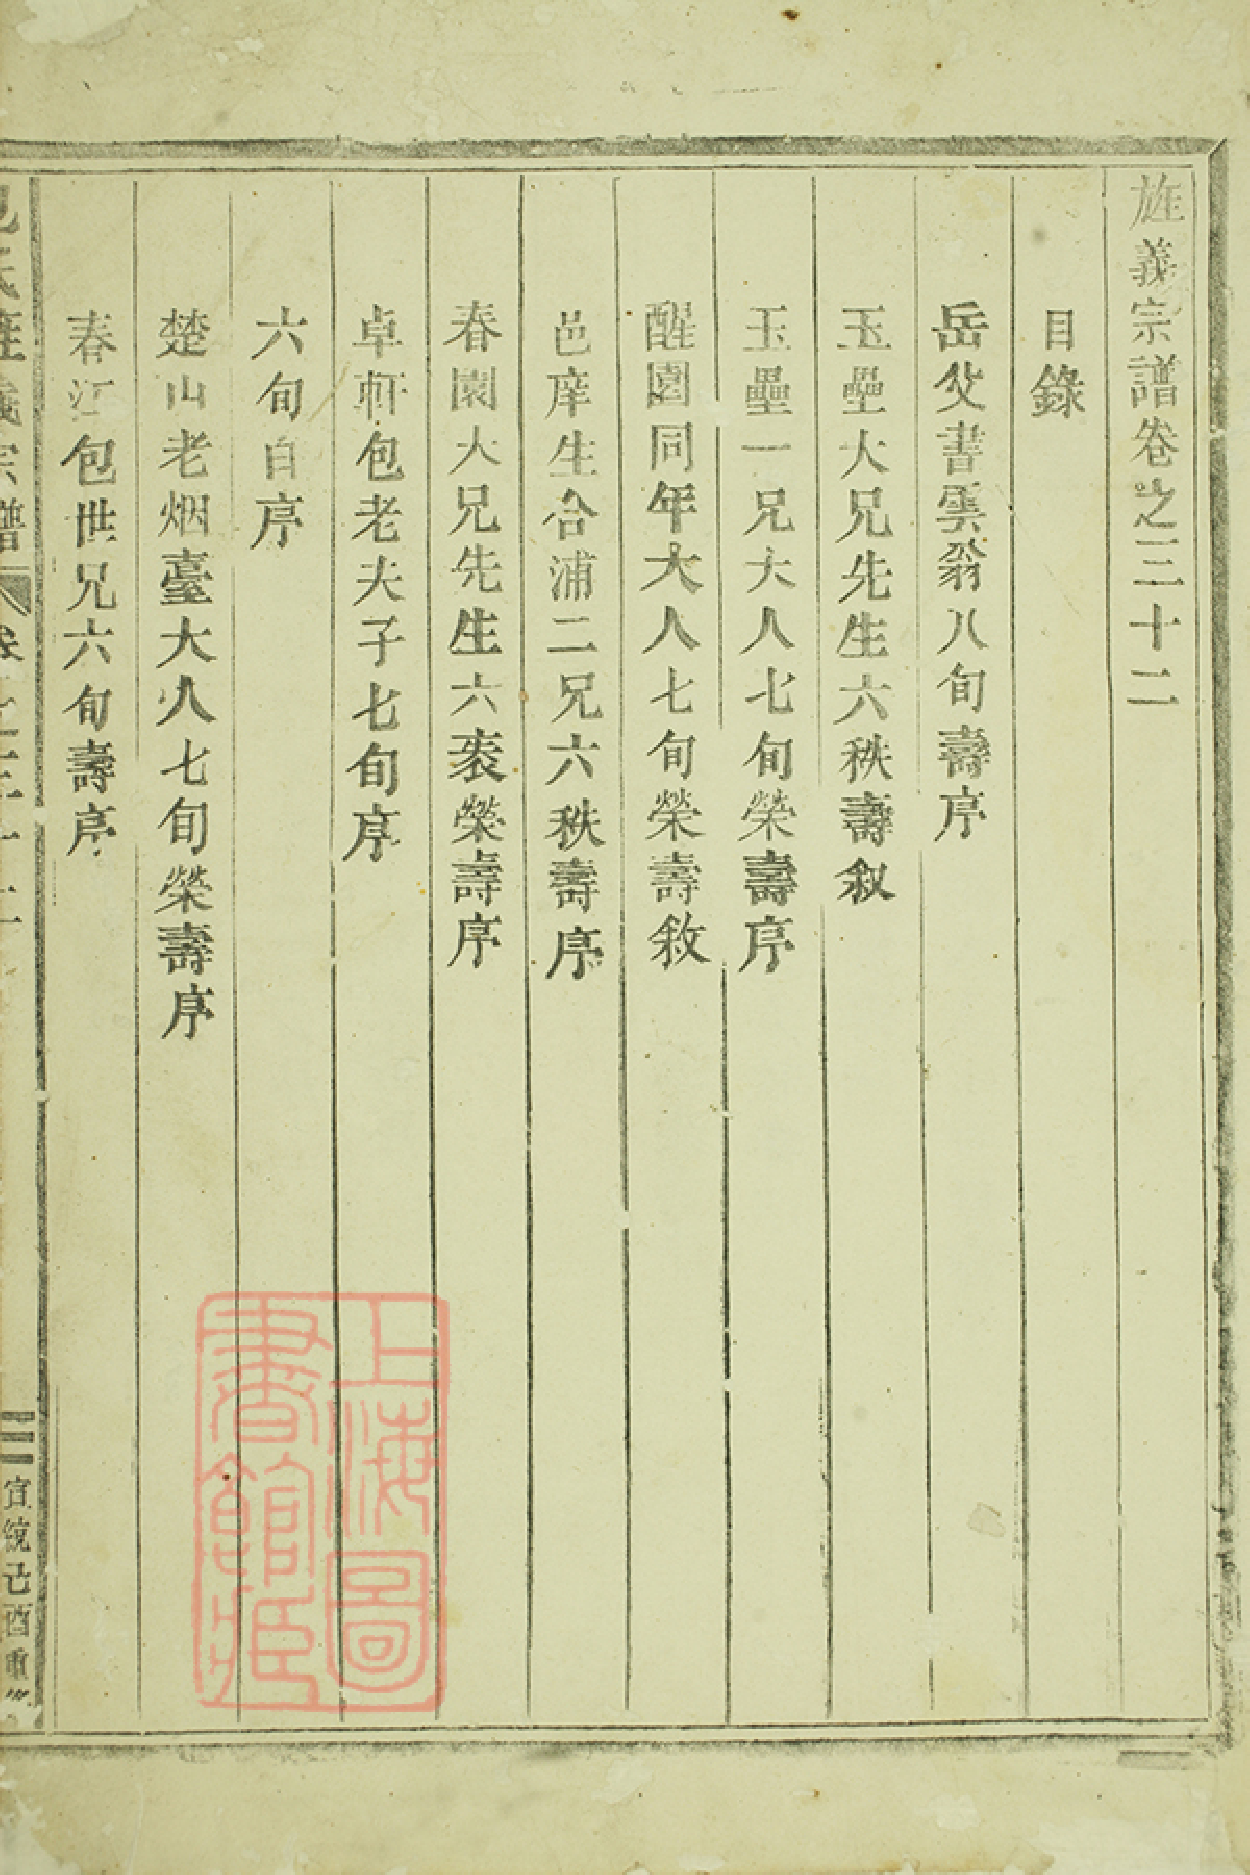 旌義宗譜卷之三十二
目錄
岳父書雲翁八旬壽序
玉壘大兄先生六秩壽叙
玉壘一兄大人七旬榮壽序
醒園同年大人七旬榮壽敘
邑庠生合浦二兄六秩壽序
春園大兄先生六袠榮壽序
卓軒包老夫子七旬序
六旬自序
楚山老烟臺大人七旬榮壽序
春江包世兄六旬壽序
包氏旌義宗譜 卷之三十二
宣統己酉重
上海圖書館藏